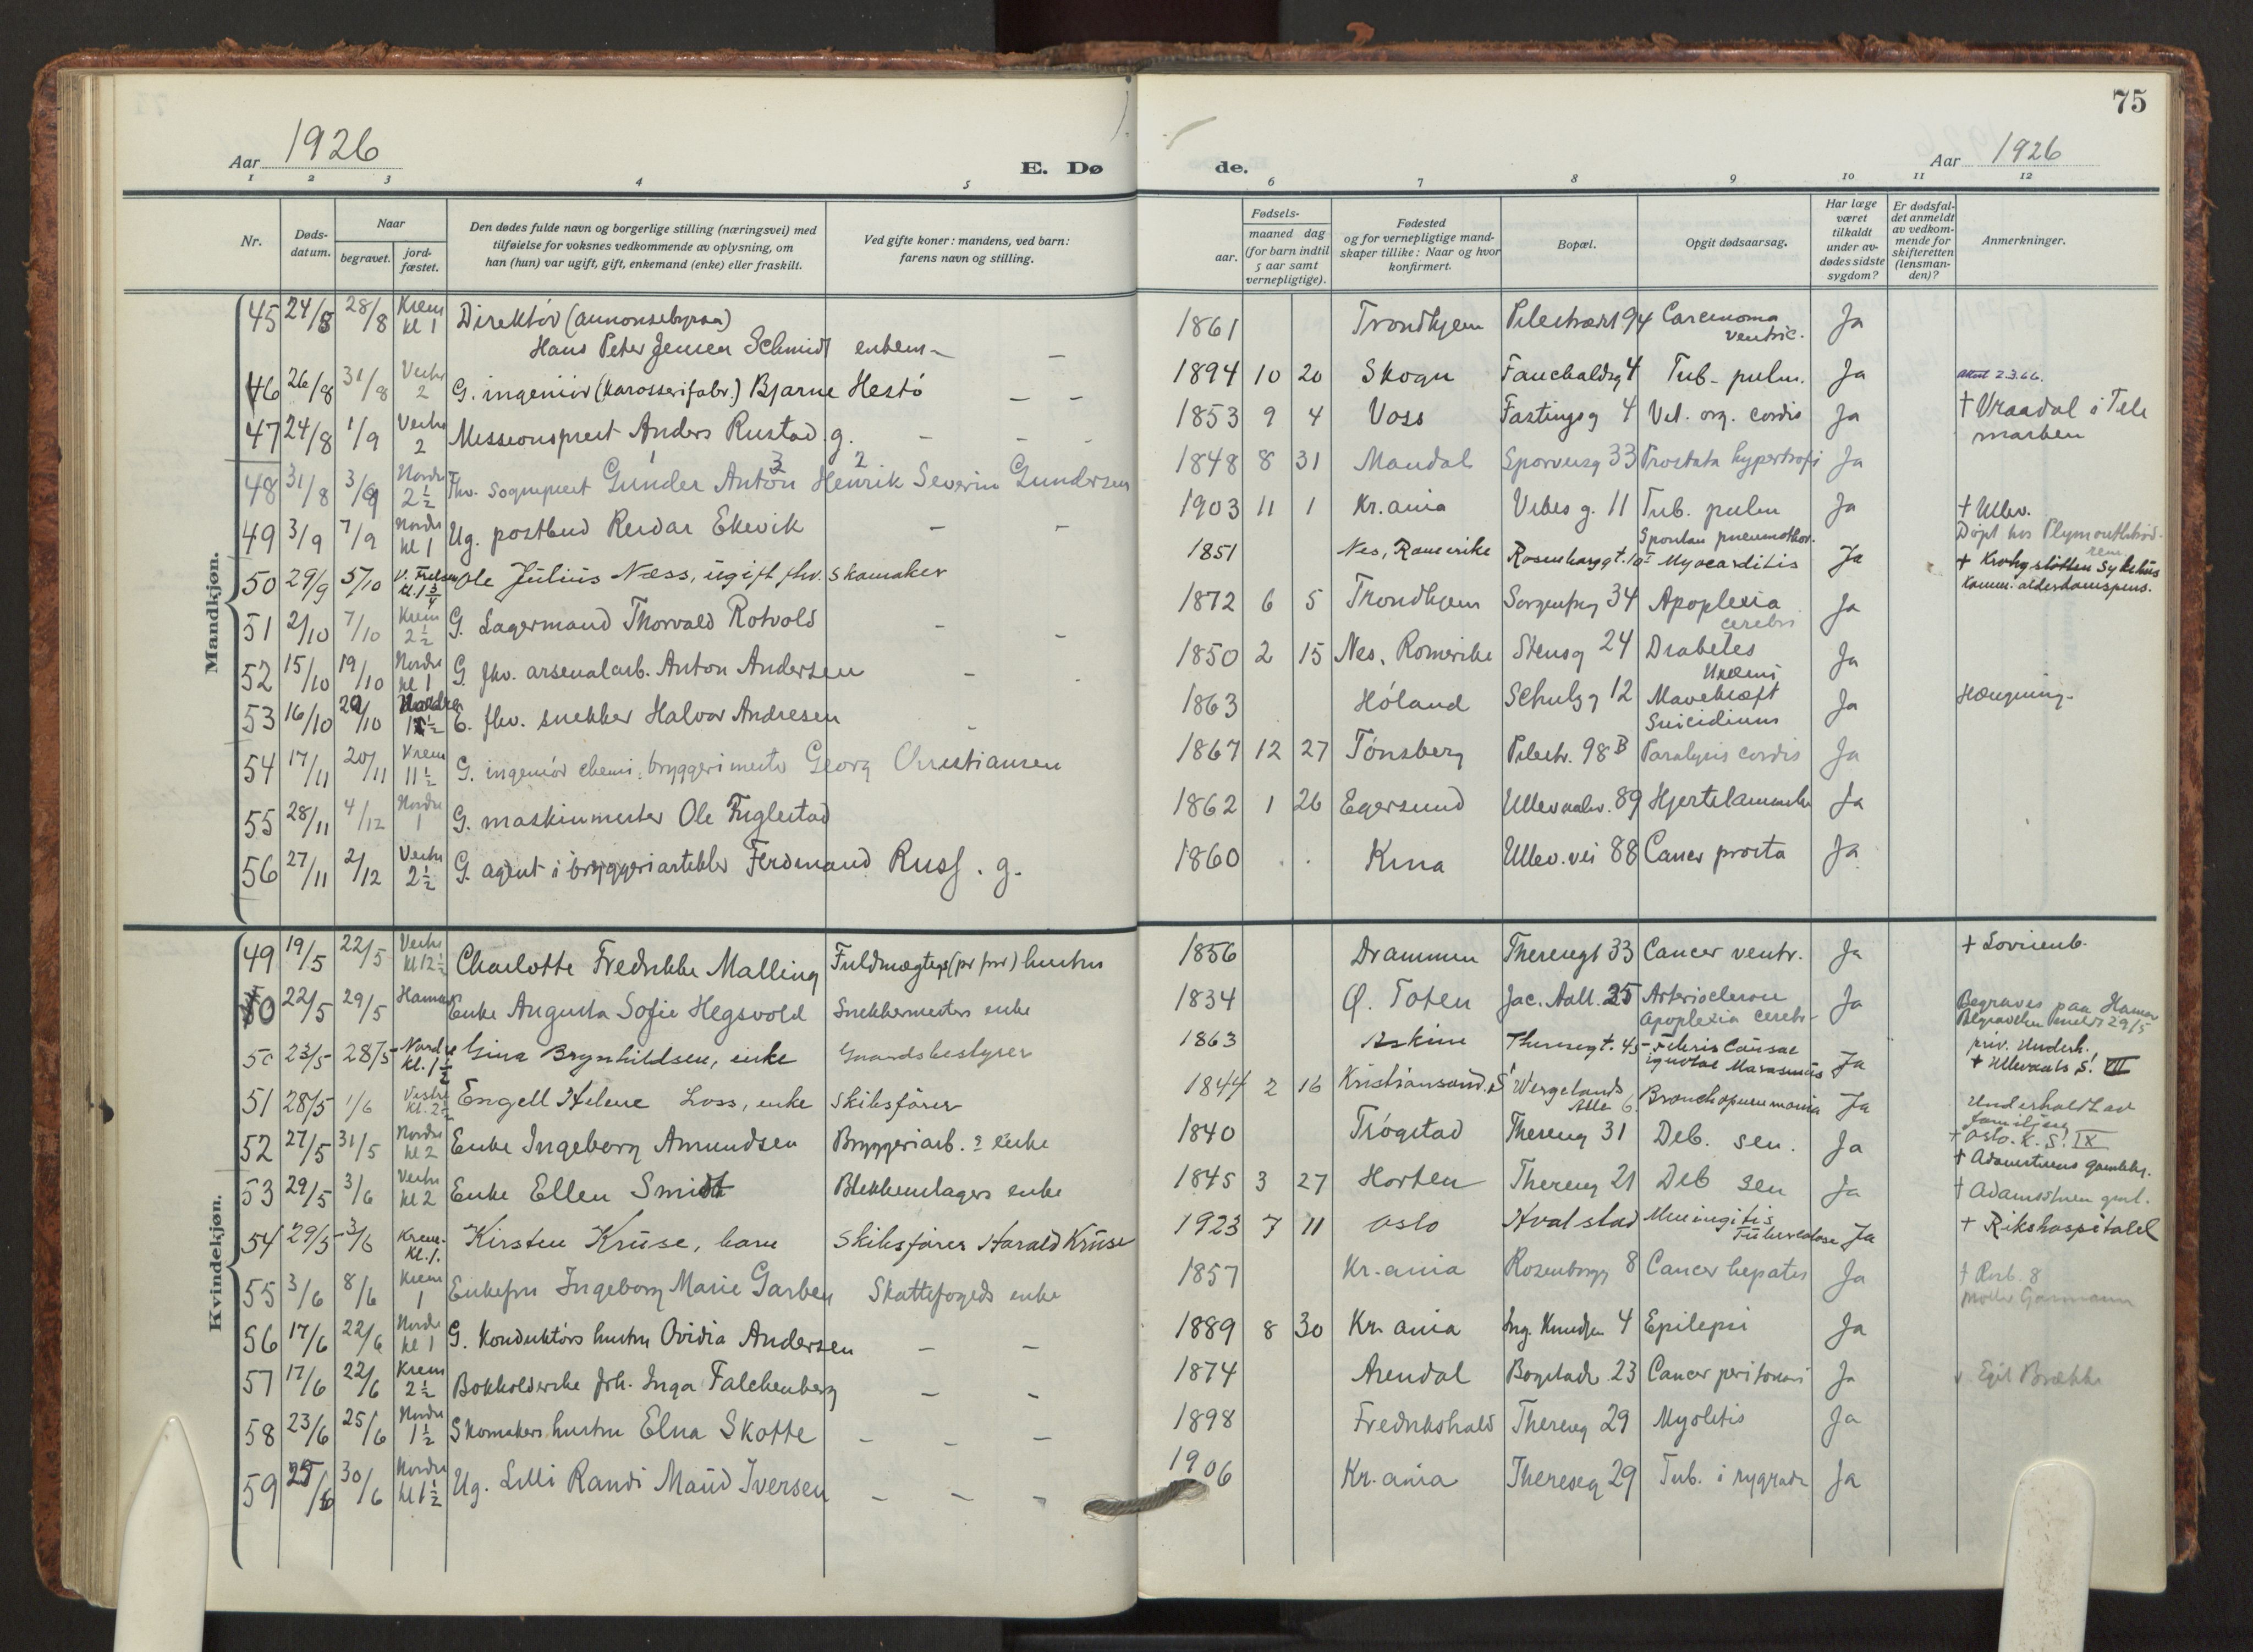 75
Aar 1926
E. Dø
de.
Aar 1926
1 2 3 4 5 6 7 8 9 10 11 12
Nr.
Døds-
datum.
Naar
begravet.
jord-
fæstet.
Den dødes fulde navn og borgerlige stilling (næringsvei) med
tilføielse for voksnes vedkommende av oplysning, om
han (hun) var ugift, gift, enkemand (enke) eller fraskilt.
Ved gifte koner: mandens, ved barn:
farens navn og stilling.
Fødsels-
aar.
maaned dag
(for barn indtil
5 aar samt
vernepligtige).
Fødested
og for vernepligtige mand-
skaper tillike: Naar og hvor
konfirmert.
Bopæl.
Opgit dødsaarsag.
Har læge
været
tilkaldt
under av-
dødes sidste
sygdom?
Er dødsfal-
det anmeldt
av vedkom-
mende for
skifteretten
(lensman-
den)?
Anmerkninger.
Mandkjøn.
45 24/8 28/8 Krem kl 1 Direktør (annonsebyraa)
Hans Peter Jensen Schmidt enkem – – 1861 Trondhjem Pilestrædet 94 Carcinoma ventric. Ja
46 26/8 31/8 Vestre 2 G. ingeniør (karosserifabr.) Bjarne Hestø – – 1894 10 20 Skogn Fauchaldsg 4 Tub. pulm. Ja 2.3.66.
47 24/8 1/9 Vestre 2 Missionsprest Anders Rustad g. – – - 1853 9 4 Voss Fastingsg 4 Vit. org. cordis Ja † Vraadal i Tele
marken
48 31/8 3/9 Nordre 2½ Fhv. Sogneprest Gunder Anton Henrik Severin Gundersen 1848 8 31 Mandal Sporveisg 33 Prostata hypertrofi Ja
49 3/9 7/9 Nordre kl 1 Ug. postbud Reidar Ekevik – – 1903 11 1 Kr.ania Vibes g. 11 Tub. pulm Spontan pneumothor. Ja † Ullev.
Døpt hos Plymouthbrød-
rene.
50 29/9 5/10 V. Frelsers kl. 1¾ Ole Julius Næss, ugift fhv. skomaker 1851 Nes, Romerike Rosenborggt. 10 Myocarditis Ja † Krohgstøtten Sykehus
Komm. alderdomspens.
51 2/10 7/10 Krem 2½ G. Lagermand Thorvald Rotvold – – 1872 6 5 Trondhjem Sorgenfrig 34 Apoplexia cerebri Ja
52 15/10 19/10 Nordre kl 1 G. fhv. arsenalarb. Anton Andersen – - 1850 2 15 Nes, Romerike Stensg 24 Diabetes Uræmi Ja
53 16/10 20/10 Nordre 1½ E. fhv. snekker Halvor Andresen – 1863 Høland Schulzg 12 Mavekræft Suicidium Ja Hængning.
54 17/11 20/11 Krem 11½ G. ingeniør chemi. bryggerimester Georg Christiansen 1867 12 27 Tønsberg Pilestr. 98B Paralysis cordis Ja
55 28/11 4/12 Nordre 1 G. maskinmester Ole Fuglestad 1862 1 26 Egersund Ullevaalsv. 89 Hjertelammelse Ja
56 27/11 2/12 Vestre 2½ G. agent i bryggeriartikler Ferdinand Russ. g. 1860 Kina Ullev. vei 88 Cancer prosta Ja
Kvindekjøn.
49 19/5 22/5 Vestre kl 12½ Charlotte Fredrikke Malling Fuldmægtigs (pr priv) hustru 1856 Drammen Theresegt 33 Cancer ventr. Ja † Lovisenb.
50 22/5 29/5 Hamar Enke Augusta Sofie Hegsvold Snekkermesters enke 1834 Ø. Toten Jac. Aall. 25 Arteriosclerose Apoplexia cerebr- Ja Begraves paa Hamar
Begravelsen anmeldt 29/5
50 23/5 28/5 Nordre kl. 1½ Gina Brynhildsen, enke Gaardsbestyrer 1863 Askim Theresegt. 45 Febris causae ignotae Marasmus Ja priv. Underh.
† Ullevaals S! VII
51 28/5 1/6 Vestre kl. 2½ Engell Helene Loss, enke skibsfører 1844 2 16 Kristiansand. S Wergelands Alle 6. Bronchopneumonia Ja Underholdt av
familien
52 27/5 31/5 Nordre kl 2 Enke Ingeborg Amundsen Bryggeriarb.s enke 1840 Trøgstad Thereseg 31 Deb. sen. Ja † Oslo. K. S! IX
53 29/5 3/6 Vestre kl 2 Enke Ellen Smidt Blekkenslagers enke 1845 3 27 Horten Thereseg 21 Deb sen Ja † Adamstuens gamlehj.
† Adamstuen gml.
54 29/5 3/6 Krem. kl. 1. Kirsten Kruse, barn Skibsfører Harald Kruse 1923 7 11 Oslo Hvalstad Meningitis Tuberculose Ja † Rikshospitalet
55 3/6 8/6 Krem 1 Enkefru Ingeborg Marie Garben Skattefogeds enke 1857 Kr.ania Rosenborgg 8 Cancer hepatis Ja † Rosb. 8
56 17/6 22/6 Nordre kl 1 G. Konduktørs hustru Ovidia Andersen – – 1889 8 30 Kr.ania Ing. Knudsen 4 Epilepsi Ja
57 17/6 22/6 Krem 2½ Bokholderske frk. Inga Falchenberg – – 1874 Arendal Bogstadv. 23 Cancer peritonei Ja v. Egil Brække
58 23/6 25/6 Nordre 1½ Skomakers hustru Elna Skotte – – – 1898 Fredrikshald Thereseg 29 Myolitis Ja
59 25/6 30/6 Nordre kl 1½ Ug. Lilli Randi Maud Iversen – – – 1906 Kr.ania Thereseg 29 Tub. i rygrad Ja